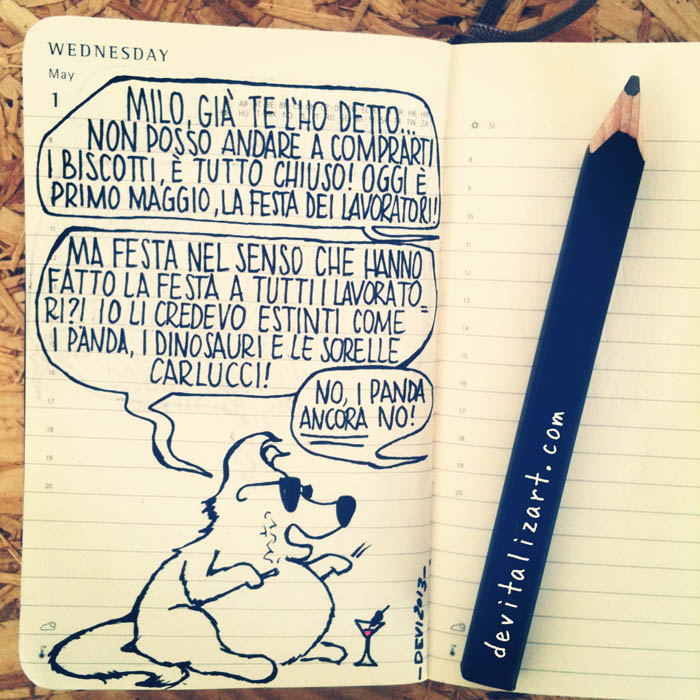 WEDNESDAY
May
1
MILO, GIÀ TE L'HO DETTO...
NON POSSO ANDARE A COMPRARTI
I BISCOTTI, È TUTTO CHIUSO! OGGI È
PRIMO MAGGIO, LA FESTA DEI LAVORATORI!
MA FESTA NEL SENSO CHE HANNO
FATTO LA FESTA A TUTTI I LAVORATO=
RI?! IO LI CREDEVO ESTINTI COME
I PANDA, I DINOSAURI E LE SORELLE
CARLUCCI!
NO, I PANDA
ANCORA NO!
-DEVI2013-
11
16
17
18
19
20
SI
8
9
10
11
12
17
18
19
20
devitalizart.com